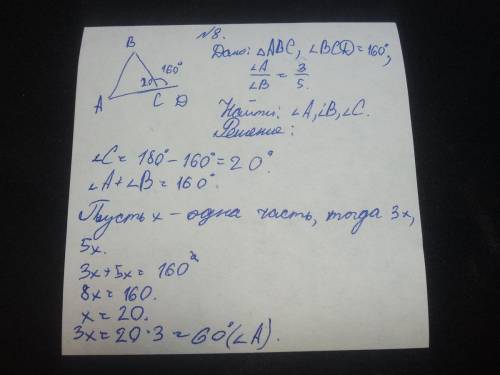 №8.
B
160°
20
A
C
D
Дано: △ABC, ∠BCD=160°,
∠A/∠B = 3/5.
Найти: ∠A, ∠B, ∠C.
Решение:
∠C = 180° - 160° = 20°.
∠A + ∠B = 160°.
Пусть x - одна часть, тогда 3x,
5x.
3x + 5x = 160°
8x = 160.
x = 20.
3x = 20 · 3 = 60° (∠A).